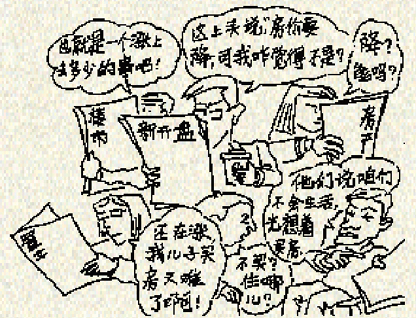 也就是一个涨上
去多少的事吧!
这上头说"房价要
降,可我咋觉得不是?
降?
能吗?
楼市
新开盘
房
他们说咱们
不会生活,
光想着
买房
还在涨
我儿子买
房又难
了啊!
不买?
住哪
儿?